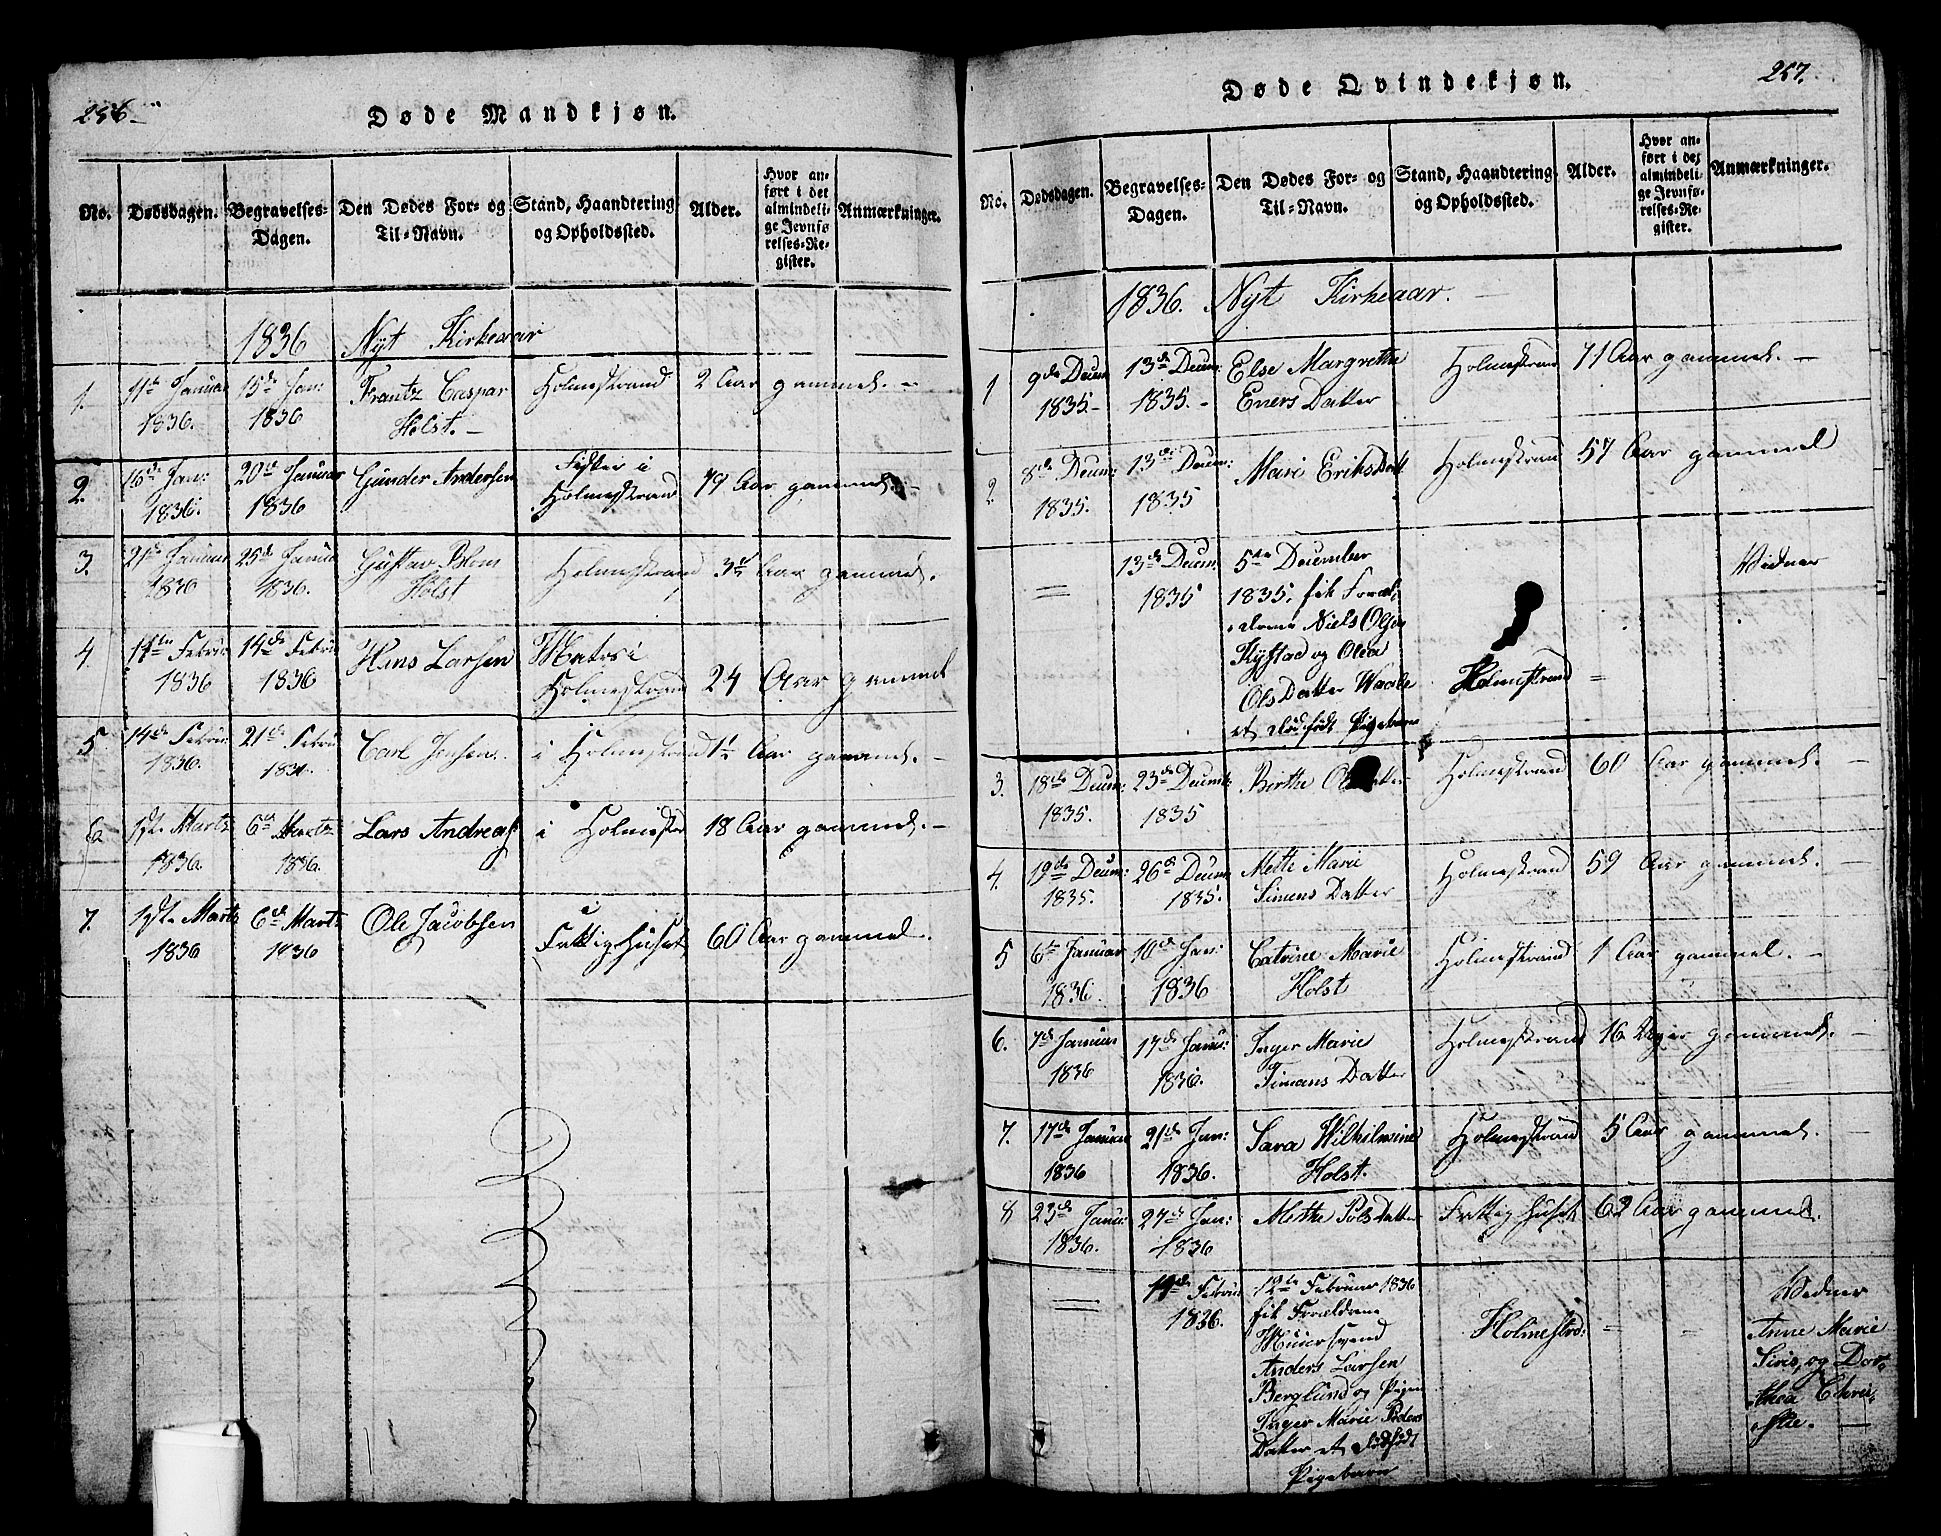 256.
Døde Mandkjøn.
No.
Dødsdagen.
Begravelses-
Dagen.
Den Dødes For- og
Til-Navn.
Stand, Haandtering
og Opholdssted.
Alder.
Hvor an-
ført i det
almindeli-
ge Jevnfø-
relses-Re-
gister.
Anmærkninger.
1836 Nyt Kirkeaar
1. 11te Januar 15de Jan: Frantz Caspar Holmestrand 2 Aar gammel. -
1836. 1836 Holst. -
2. 16de Jan: 20de Januar Gunder Andersen Fisker i
Holmestrand 79 Aar gammel. -
1836. 1836
3. 21de Januar 25de Januar Gustav Blom Holmestrand 3½ Aar gammel.
1836 1836. Holst
4. 11te Febru: 14de Febru: Hans Larsen Matros i
1836 1836 Holmestrand 24 Aar gammel
5 14de Febru: 21de Febru: Carl Jensen. i Holmestrand 1½ Aar gammel. -
1836. 1836.
6 1ste Martz 6te Martz Lars Andreas i Holmestr 18 Aar gammel. -
1836. 1836.
7. 1ste Martz 6te Martz Ole Jacobsen i
Fattighuset 60 Aar gammel.
1836 1836
257.
Døde Qvindekjøn.
No.
Dødsdagen.
Begravelses-
Dagen.
Den Dødes For- og
Til-Navn.
Stand, Haandtering
og Opholdssted.
Alder.
Hvor an-
ført i det
almindeli-
ge Jevnfø-
relses-Re-
gister.
Anmærkninger.
1836. Nyt Kirkeaar. -
1 9de Decem 13de Decem: Else Margrethe Holmestrand 71 Aar gammel. -
1835. - 1835. - Eners Datter
2 8de Decem: 13de Decem: Mari Eriks Datt Holmestrand 57 Aar gammel
1835. 1835
= 13de Decem 5te December Vidner
1835 1835, fik Foræl-
drene Niels Olsen
Kystad og Olea
Ols Datter Waale Holmestrand =
et dødfødt Pigebarn
3. 18de Decem: 23de Decemb: Birthe Ols Datter Holmestrand 60 Aar gammel. -
1835. 1835
4. 19de Decem: 26de Decem: Mette Marie Holmestrand 59 Aar gammel. -
1835. 1835. Simens Datter
5 6te Januar 10de Jan: Catrine Marie Holmestrand 1 Aar gammel. -
1836. 1836 Holst
6. 7de Januar 17de Janu: Inger Marie Holmestrand 16 Uger gammel. -
1836 1836. Simans Datter
7. 17de Januar 21de Jan: Sara Wilhelmine Holmestrand 5 Aar gammel. -
1836 1836. Holst.
8 23de Janu: 27de Jan: Mette Pols Datter Fattighuset 62 Aar gammel.
1836. 1836
= 14de Febru 12te Februar 1836 Vidner
1836. fik Forældrene Holmestrd: = = Anne Marie
Muursvend Siris, og Dor-
Anders Larsen thea Chri-
Berglund og Pigen stie. -
Inger Marie Peders
Datter et dødfødt
Pigebarn